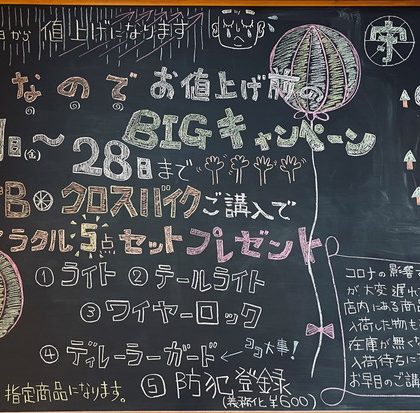 日から 値上げになります
なので お値上げ前の
日(金)〜28日まで BIGキャンペーン
B クロスバイクご講入で
ラクル5点セットプレゼント
①ライト ②テールライト
③ワイヤーロック
④ディレーラーガード ← ココ大事!
⑤防犯登録
(義務化¥600)
指定商品になります。
コロナの影響で
が大変遅れ
店内にある商品
入荷した物も
在庫が無く
入荷待ちに
お早目のご講